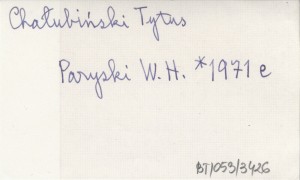 Chałubiński Tytus
Paryski W.H. *1971 e
BT/053/3426